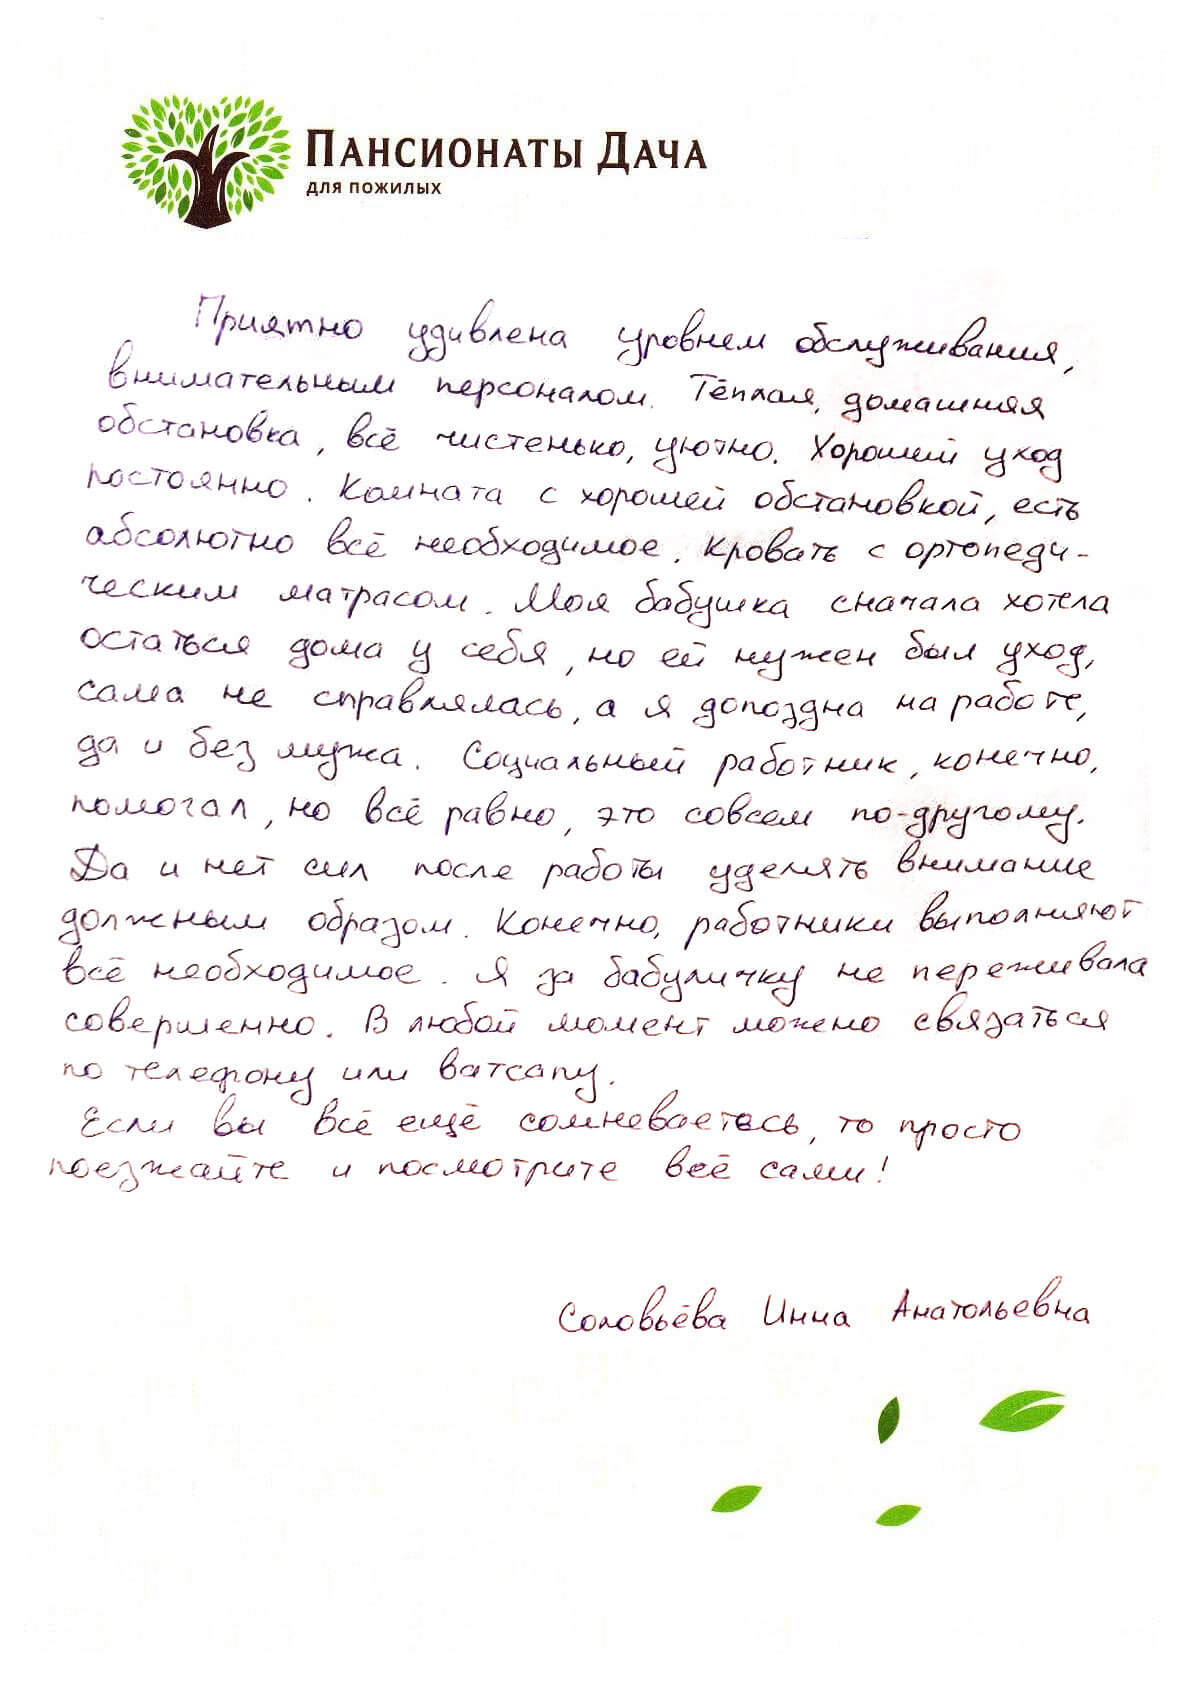 Пансионаты Дача
для пожилых
Приятно удивлена уровнем обслуживания,
внимательным персоналом. Тёплая, домашняя
обстановка, всё чистенько, уютно. Хороший уход
постоянно. Комната с хорошей обстановкой, есть
абсолютно всё необходимое. Кровать с ортопеди-
ческим матрасом. Моя бабушка сначала хотела
остаться дома у себя, но ей нужен был уход,
сама не справлялась, а я допоздна на работе,
да и без мужа. Социальный работник, конечно,
помогал, но всё равно, это совсем по-другому.
Да и нет сил после работы уделять внимание
должным образом. Конечно, работники выполняют
всё необходимое. Я за бабуличку не переживала
совершенно. В любой момент можно связаться
по телефону или ватсапу.
Если вы всё ещё сомневаетесь, то просто
поезжайте и посмотрите всё сами!
Соловьёва Инна Анатольевна